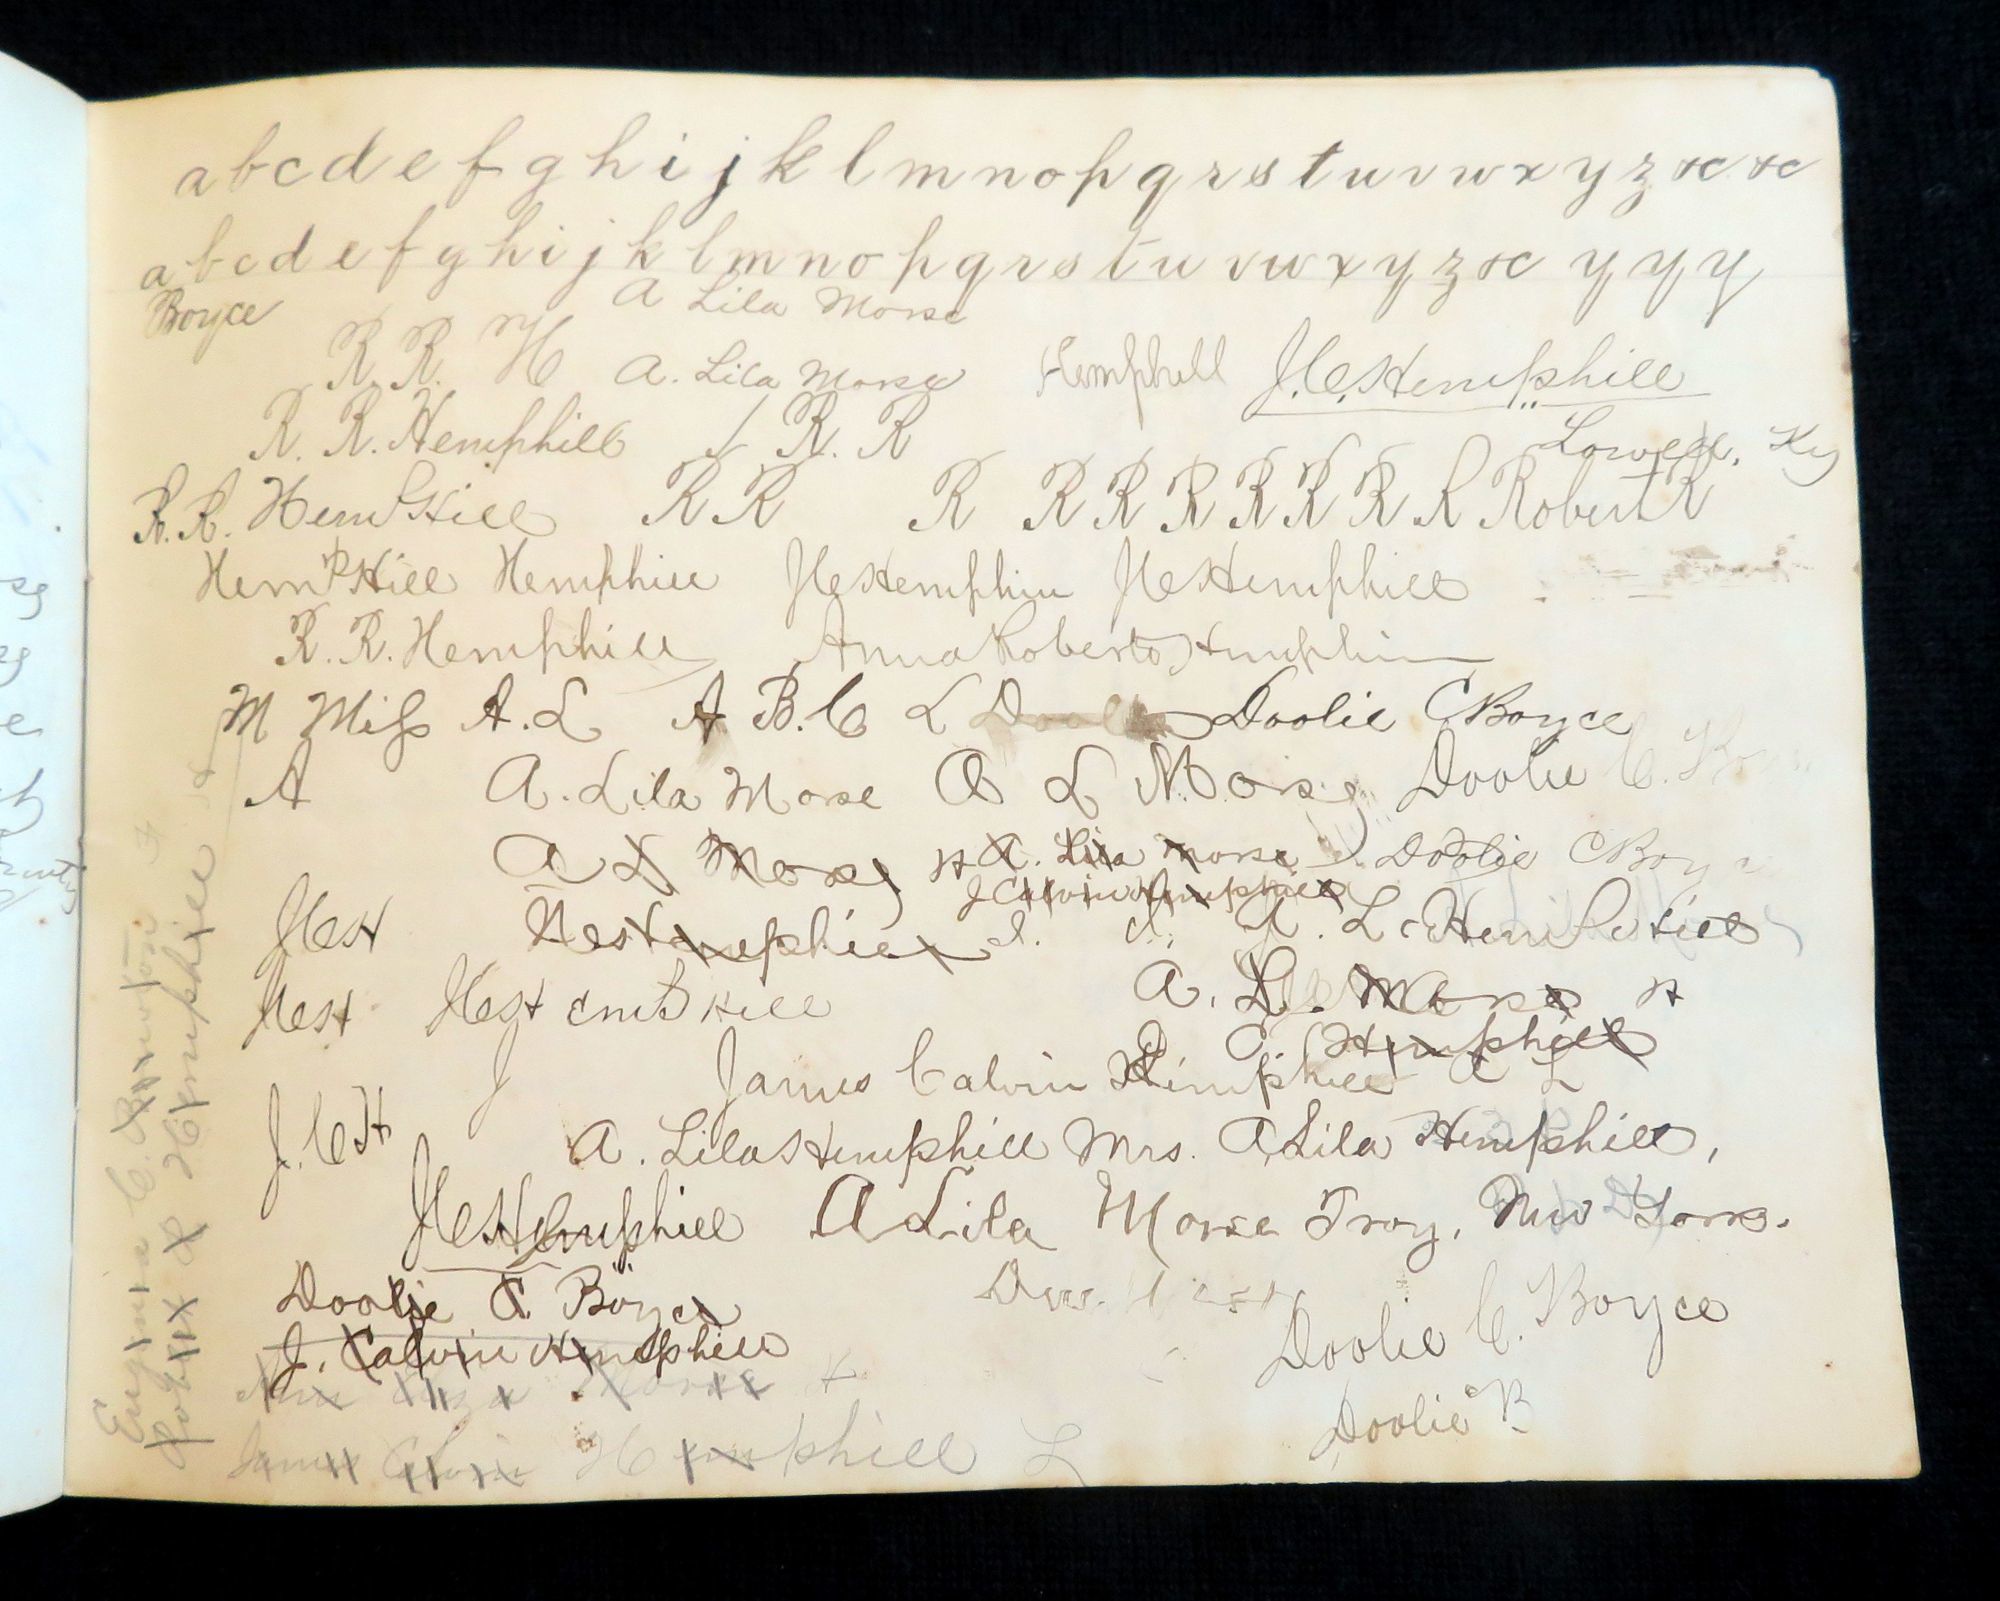 a b c d e f g h i j k l m n o p q r s t u v w x y z &c &c
a b c d e f g h i j k l m n o p q r s t u v w x y z &c y y y
Boyce A Lila Morse
R. R. H A. Lila Morse Hemphill J. C. Hemphill
R. R. Hemphill R. R Lowell, Ky
R. R. HemPHill R R R R R R R R R R Robert R
HemPHill Hemphill JCHemphill JCHemphill
R. R. Hemphill Anna Roberts Hemphill
M Miss A. L A B. C L Doolie Doolie C Boyce
A A. Lila Morse A L M. Morse Doolie C. Boy
A L Morse A. Lila Morse Doolie C Boyce
J Calvin Hemphill
JCH Hemphill A. L. Hemphill
JCH JCHemphill A. L. Morse
J C Hemphill
J James Calvin Hemphill A L
J. C H A. Lila Hemphill Mrs. A Lila Hemphill,
JCHemphill A Lila Morse Troy, New York.
Doolie C. Boyce
J. Calvin Hemphill Doolie C. Boyce
Morse
James Calvin Hemphill L Doolie B
Hemphill